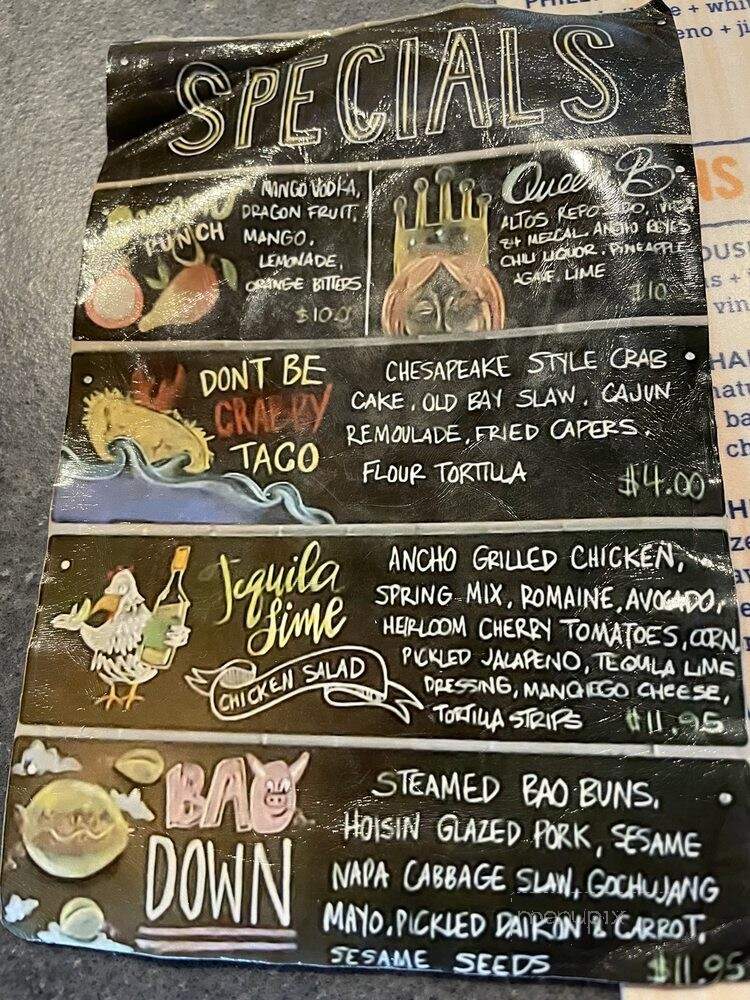 SPECIALS
PUNCH
MANGO VODKA,
DRAGON FRUIT,
MANGO,
LEMONADE,
ORANGE BITTERS
$10.0
Queen B
ALTOS REPOSADO, VIDA
MEZCAL, ANCHO REYES
CHILI LIQUOR, PINEAPPLE
AGAVE, LIME
$10
DONT BE
CRABBY
TACO
CHESAPEAKE STYLE CRAB
CAKE, OLD BAY SLAW, CAJUN
REMOULADE, FRIED CAPERS,
FLOUR TORTILLA
$4.00
Tequila
Lime
CHICKEN SALAD
ANCHO GRILLED CHICKEN,
SPRING MIX, ROMAINE, AVOCADO,
HEIRLOOM CHERRY TOMATOES, CORN,
PICKLED JALAPENO, TEQUILA LIME
DRESSING, MANCHEGO CHEESE,
TORTILLA STRIPS
$11.95
BAO
DOWN
STEAMED BAO BUNS,
HOISIN GLAZED PORK, SESAME
NAPA CABBAGE SLAW, GOCHUJANG
MAYO, PICKLED DAIKON & CARROT,
SESAME SEEDS
$11.95
menupix